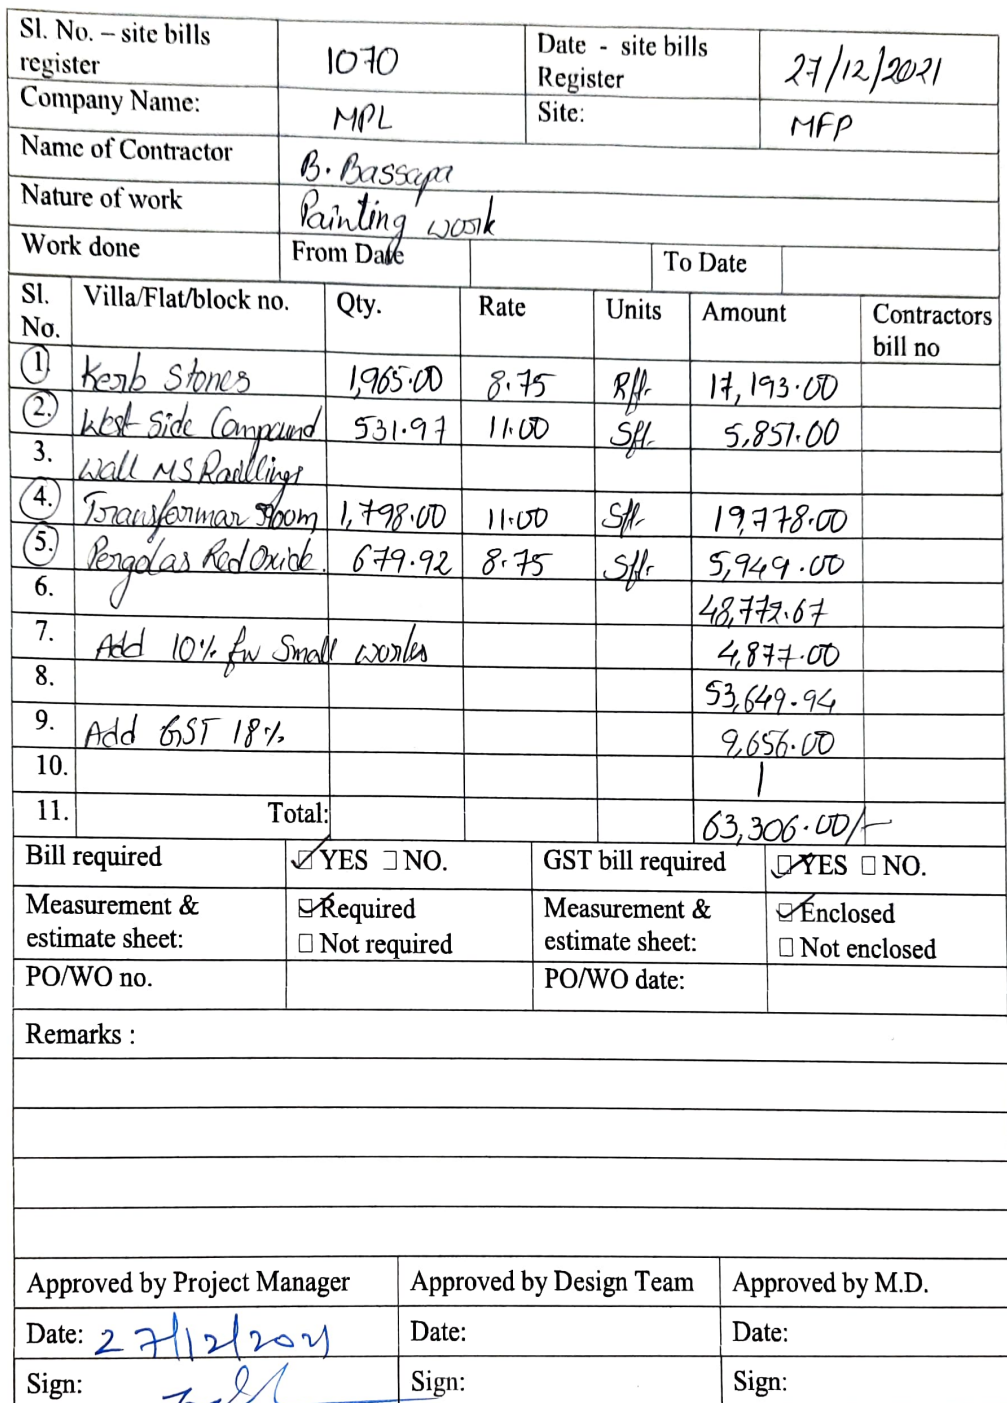 Sl. No. – site bills register 1070 Date - site bills Register 27/12/2021
Company Name: MPL Site: MFP
Name of Contractor B. Bassapa
Nature of work Painting work
Work done From Date To Date
Sl. No. Villa/Flat/block no. Qty. Rate Units Amount Contractors bill no
1. Kerb Stones 1,965.00 8.75 Rft. 17,193.00
2. West Side Compound 531.97 11.00 Sft. 5,851.00
3. Wall MS Raillings
4. Transformar Room 1,798.00 11.00 Sft. 19,778.00
5. Pergolas Red Oxide. 679.92 8.75 Sft. 5,949.00
6. 48,772.67
7. Add 10% for Small works 4,877.00
8. 53,649.94
9. Add GST 18% 9,656.00
10.
11. Total: 63,306.00/-
Bill required YES NO. GST bill required YES NO.
Measurement & estimate sheet: Required Not required Measurement & estimate sheet: Enclosed Not enclosed
PO/WO no. PO/WO date:
Remarks :
Approved by Project Manager Approved by Design Team Approved by M.D.
Date: 27/12/2021 Date: Date:
Sign: Sign: Sign: